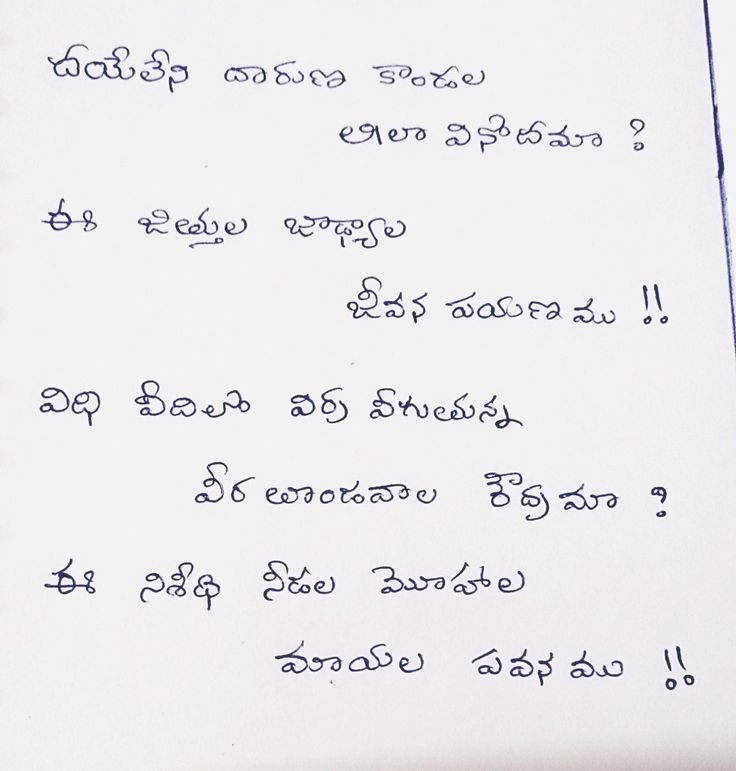 దయలేని దారుణ కాండల
లీలా వినోదమా ?
ఈ జిత్తుల జాఢ్యాల
జీవన పయణము !!
విధి వీదిలో విర్ర వీగుతున్న
వీర తాండవాల రౌద్రమా ?
ఈ నిశీధి నీడల మొహాల
మాయల పవనము !!